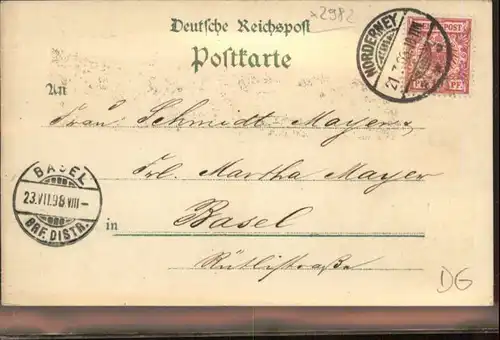 x2982
Deutsche Reichspost
Postkarte
NORDERNEY
21.7.98
REICHSPOST
PF.
An
Frau Schmidt Mayer
Frl. Martha Mayer
BASEL
23.VII.98.VIII-
BRF. DISTR.
in Basel
Rütlistraße
DG